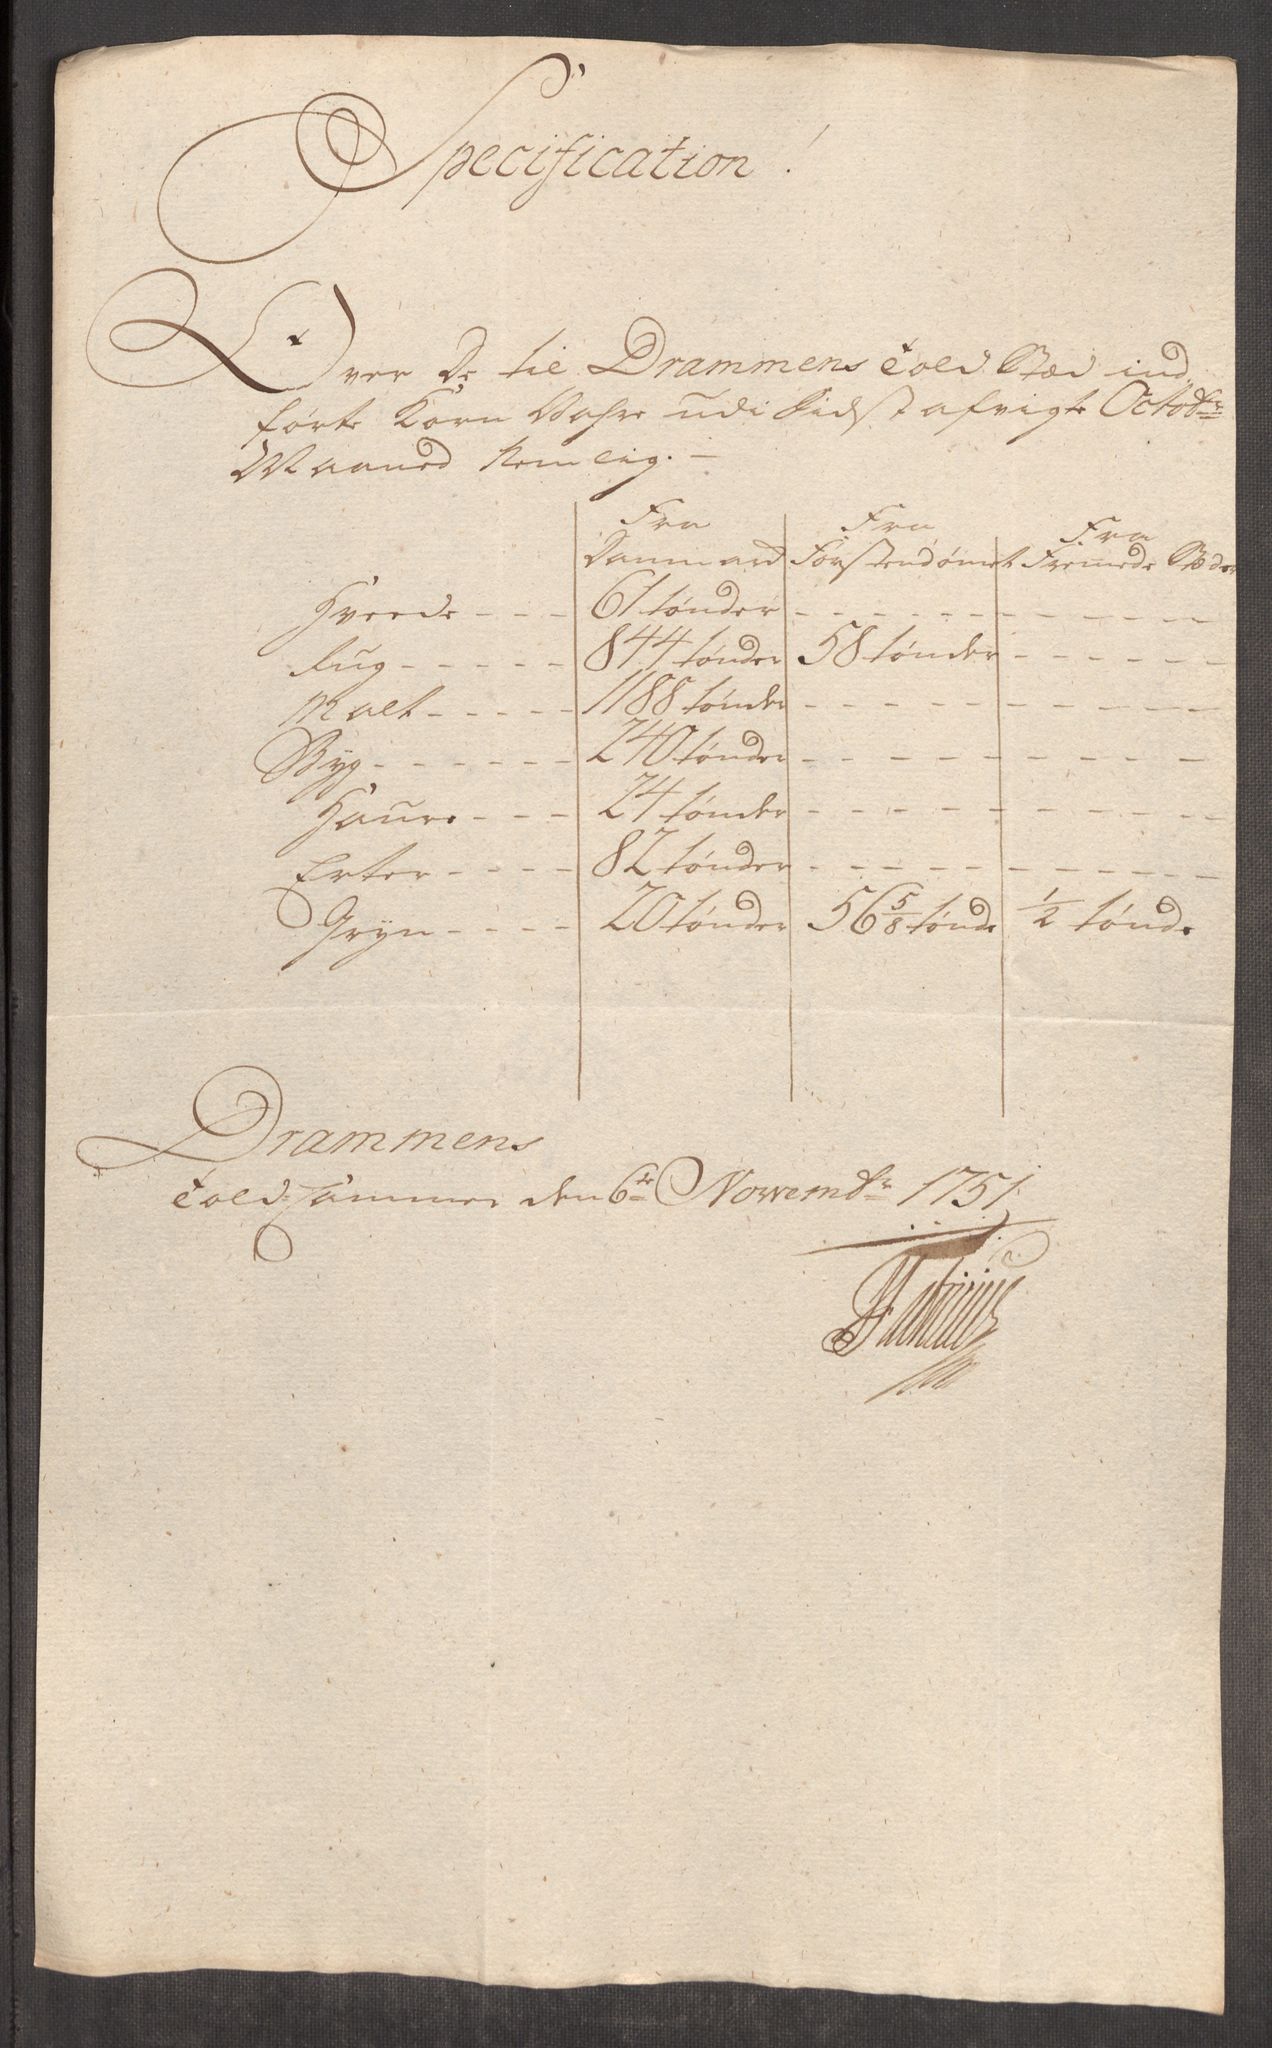 Specification!
Over De til Drammens Told Stæd ind
førte Korn Vahre udi Sidst afvigte Octobr
Maaned Nemlig. —
Fra Fra Fra
Danmard Førstendømet Fremede Stæder
Hvede - - - 61 tønder - - - - - -
Rug - - - - - 844 tønder 58 tønder - - - - - -
Malt - - - - - 1188 tønder - - - - - -
Byg - - - - - - 240 tønder - - - - - -
Haure - - - 24 tønder - - - - - -
Erter - - - - 82 tønder - - - - - -
Gryn - - - - 20 tønder 56 5/8 tønde 1/2 tønde
Drammens
Told-Cammer den 6te Novembr 1751.